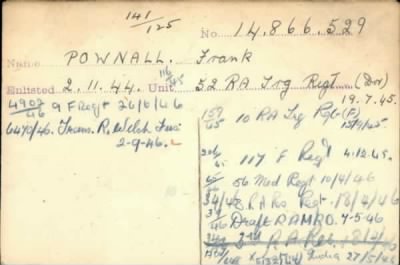 141/125
No. 14.866.529
Name POWNALL. Frank
Enlisted 2.11.44. Unit 52 RA Trg Regt (Dvr)
19.7.45.
4907/46 9 F Regt 26/6/46
157/45 10 RA Trg Regt (F)
6470/46. Trans. R. Welch Fus.
2-9-46.
117 F Regt 4.12.45.
56 Med Regt 10/4/46
34/46 RA Regt 18/4/46
Draft 7-5-46
India 27/5/46